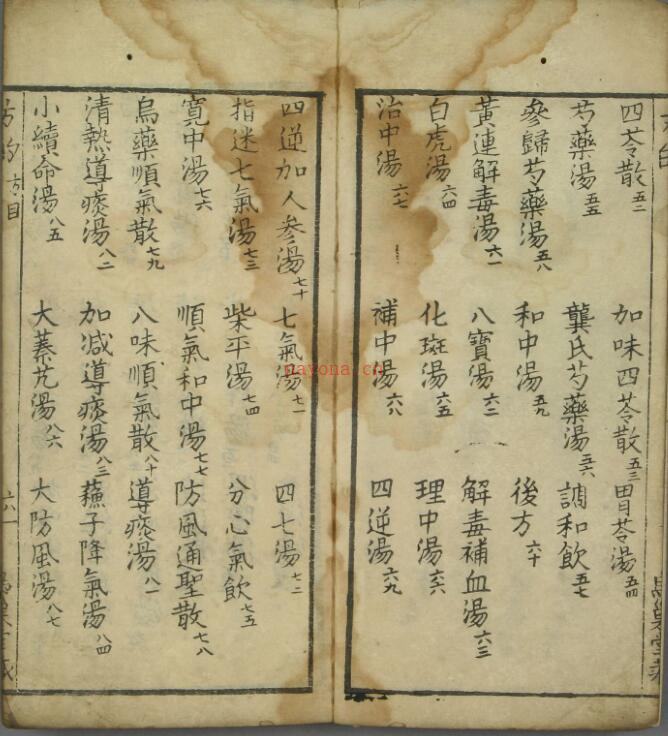 四苓散五二 加味四苓散五三 胃苓湯五四
芍藥湯五五 龔氏芍藥湯五六 調和飲五七
參歸芍藥湯五八 和中湯五九 後方六十
黃連解毒湯六一 八寶湯六二 解毒補血湯六三
白虎湯六四 化斑湯六五 理中湯六六
治中湯六七 補中湯六八 四逆湯六九
四逆加人參湯七十 七氣湯七一 四七湯七二
指迷七氣湯七三 柴平湯七四 分心氣飲七五
寬中湯七六 順氣和中湯七七 防風通聖散七八
烏藥順氣散七九 八味順氣散八十 導痰湯八一
清熱導痰湯八二 加減導痰湯八三 蘓子降氣湯八四
小續命湯八五 大蓁艽湯八六 大防風湯八七
目
六一
nayona.cn